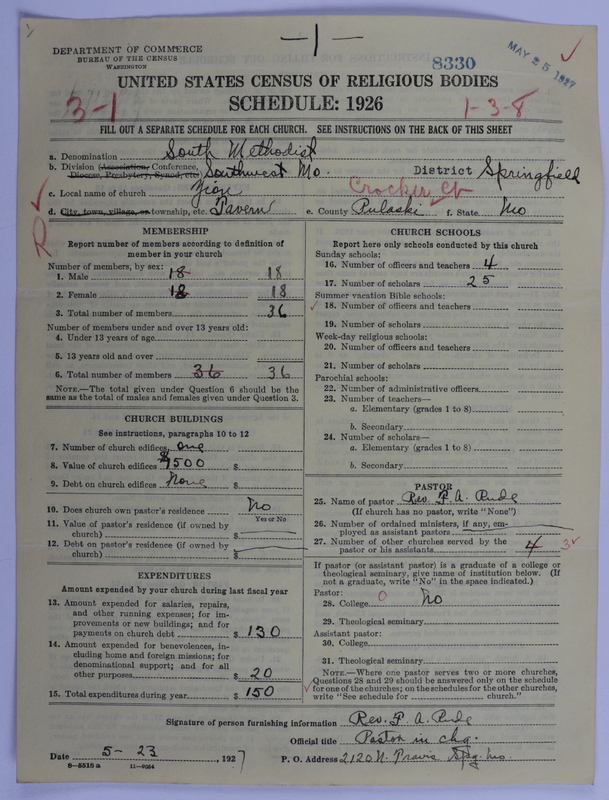 -1-
DEPARTMENT OF COMMERCE
BUREAU OF THE CENSUS
WASHINGTON
8330
MAY 25 1927
UNITED STATES CENSUS OF RELIGIOUS BODIES
3-1
SCHEDULE: 1926
1-3-8
FILL OUT A SEPARATE SCHEDULE FOR EACH CHURCH. SEE INSTRUCTIONS ON THE BACK OF THIS SHEET
a. Denomination South Methodist
b. Division (Association, Conference, Diocese, Presbytery, Synod, etc.) Southwest Mo. District Springfield
c. Local name of church Zion Crocker Ct
d. City, town, village, or township, etc. Tavern e. County Pulaski f. State Mo
MEMBERSHIP
Report number of members according to definition of
member in your church
Number of members, by sex:
1. Male 18 18
2. Female 18 18
3. Total number of members 36
Number of members under and over 13 years old:
4. Under 13 years of age
5. 13 years old and over
6. Total number of members 36 36
NOTE.—The total given under Question 6 should be the
same as the total of males and females given under Question 3.
CHURCH BUILDINGS
See instructions, paragraphs 10 to 12
7. Number of church edifices one
8. Value of church edifices $1500 $
9. Debt on church edifices None $
10. Does church own pastor's residence No
Yes or No
11. Value of pastor's residence (if owned by
church) $
12. Debt on pastor's residence (if owned by
church) $
EXPENDITURES
Amount expended by your church during last fiscal year
13. Amount expended for salaries, repairs,
and other running expenses; for im-
provements or new buildings; and for
payments on church debt $ 130
14. Amount expended for benevolences, in-
cluding home and foreign missions; for
denominational support; and for all
other purposes $ 20
15. Total expenditures during year $ 150
CHURCH SCHOOLS
Report here only schools conducted by this church
Sunday schools:
16. Number of officers and teachers 4
17. Number of scholars 25
Summer vacation Bible schools:
18. Number of officers and teachers
19. Number of scholars
Week-day religious schools:
20. Number of officers and teachers
21. Number of scholars
Parochial schools:
22. Number of administrative officers
23. Number of teachers—
a. Elementary (grades 1 to 8)
b. Secondary
24. Number of scholars—
a. Elementary (grades 1 to 8)
b. Secondary
PASTOR
25. Name of pastor Rev. P. A. Rude
(If church has no pastor, write "None")
26. Number of ordained ministers, if any, em-
ployed as assistant pastors
27. Number of other churches served by the
pastor or his assistants 4 3
If pastor (or assistant pastor) is a graduate of a college or
theological seminary, give name of institution below. (If
not a graduate, write "No" in the space indicated.)
Pastor:
28. College 0 No
29. Theological seminary
Assistant pastor:
30. College
31. Theological seminary
NOTE.—Where one pastor serves two or more churches,
Questions 28 and 29 should be answered only on the schedule
for one of the churches; on the schedules for the other churches,
write "See schedule for church."
Signature of person furnishing information Rev. P. A. Rude
Official title Pastor in chg.
Date 5-23, 1927 P. O. Address 2120 N. Travis Spg. Mo.
8—5516 a 11—9064